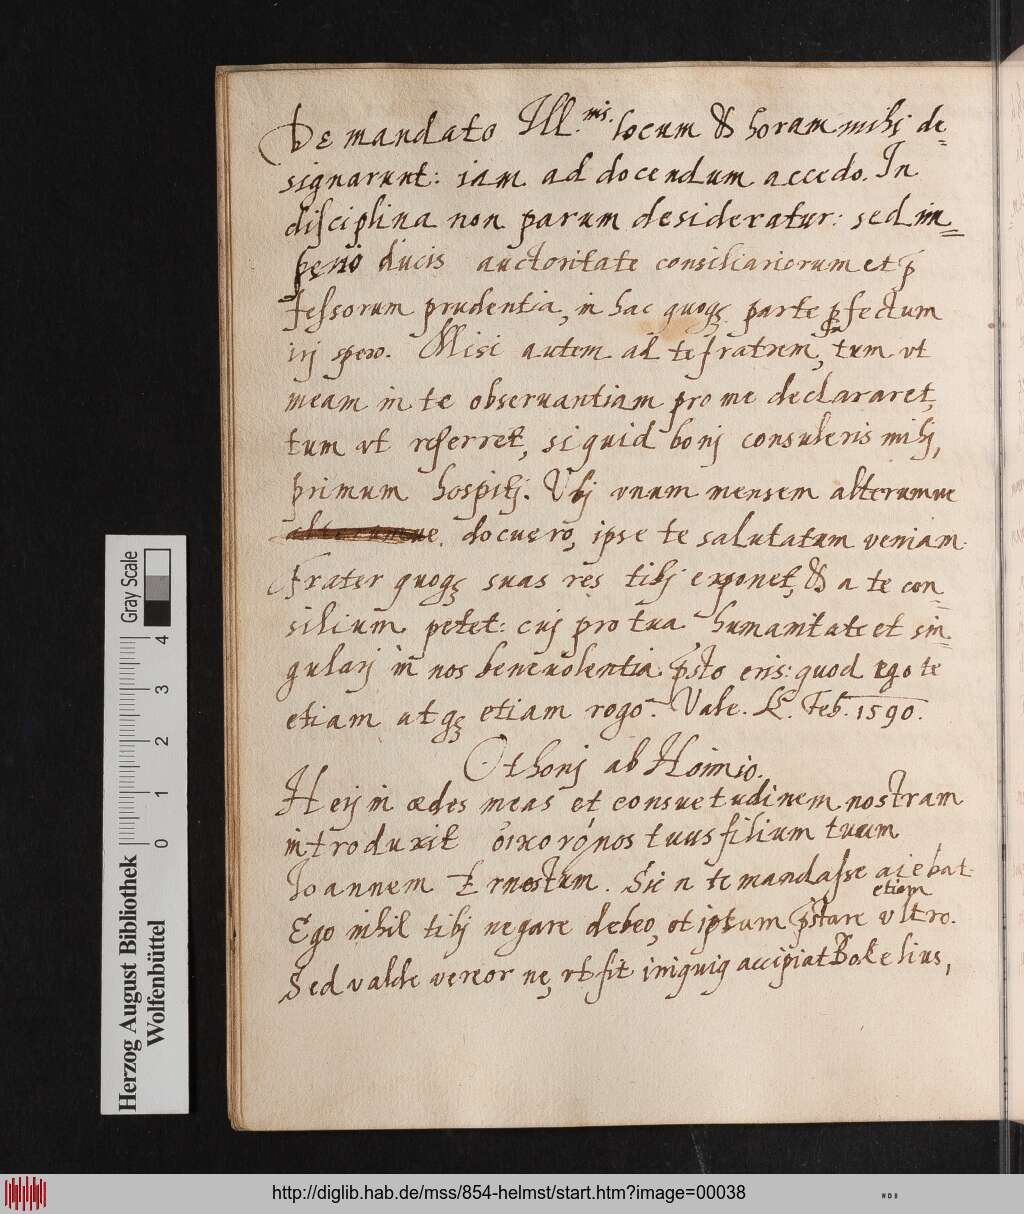 De mandato Ill.mis. locum & horam mihj de=
signarunt: iam ad docendum accedo. In
disciplina non parum desideratur: sed im=
perio ducis auctoritate consiliariorum et p
fessorum prudentia, in hac quoq3 parte pfectum
irj spero. Misi autem ad te fratrem, tum vt
meam in te obseruantiam pro me declararet,
tum vt referret, siquid bonj consuleris mihj,
primum hospitj. Vbj vnum mensem alterumue
alterumue. docuero, ipse te salutatum veniam.
Frater quoq3 suas res tibj exponet, & a te con=
silium petet: cuj pro tua humanitate et sin=
gularj in nos beneuolentia psto eris: quod ego te
etiam atq3 etiam rogo. Vale. Feb. 1590.
Othonj ab Hoimio.
Herj in ædes meas et consuetudinem nostram
introduxit tuus filium tuum
Joannem Ernestum. Sic n te mandasse aiebat.
Ego nihil tibj negare debeo, et ipsum pstare etiam vltro.
Sed valde vereor ne, vt fit iniquiq accipiat Bokelius,
Herzog August Bibliothek
Wolfenbüttel
Gray Scale
0 1 2 3 4
http://diglib.hab.de/mss/854-helmst/start.htm?image=00038